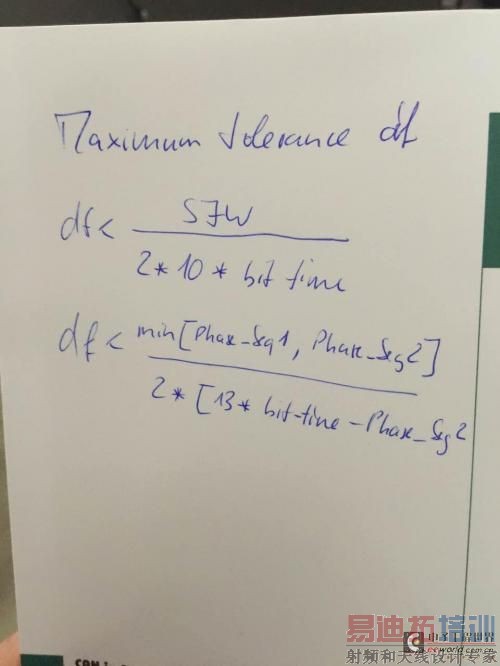 Maximum tolerance df
df < SJW
2 * 10 * bit time
df < min[Phase_Seg1, Phase_Seg2]
2 * [13 * bit-time - Phase_Seg2
易迪拓培训
射频和天线设计专家
电子工程世界
eeworld.com.cn